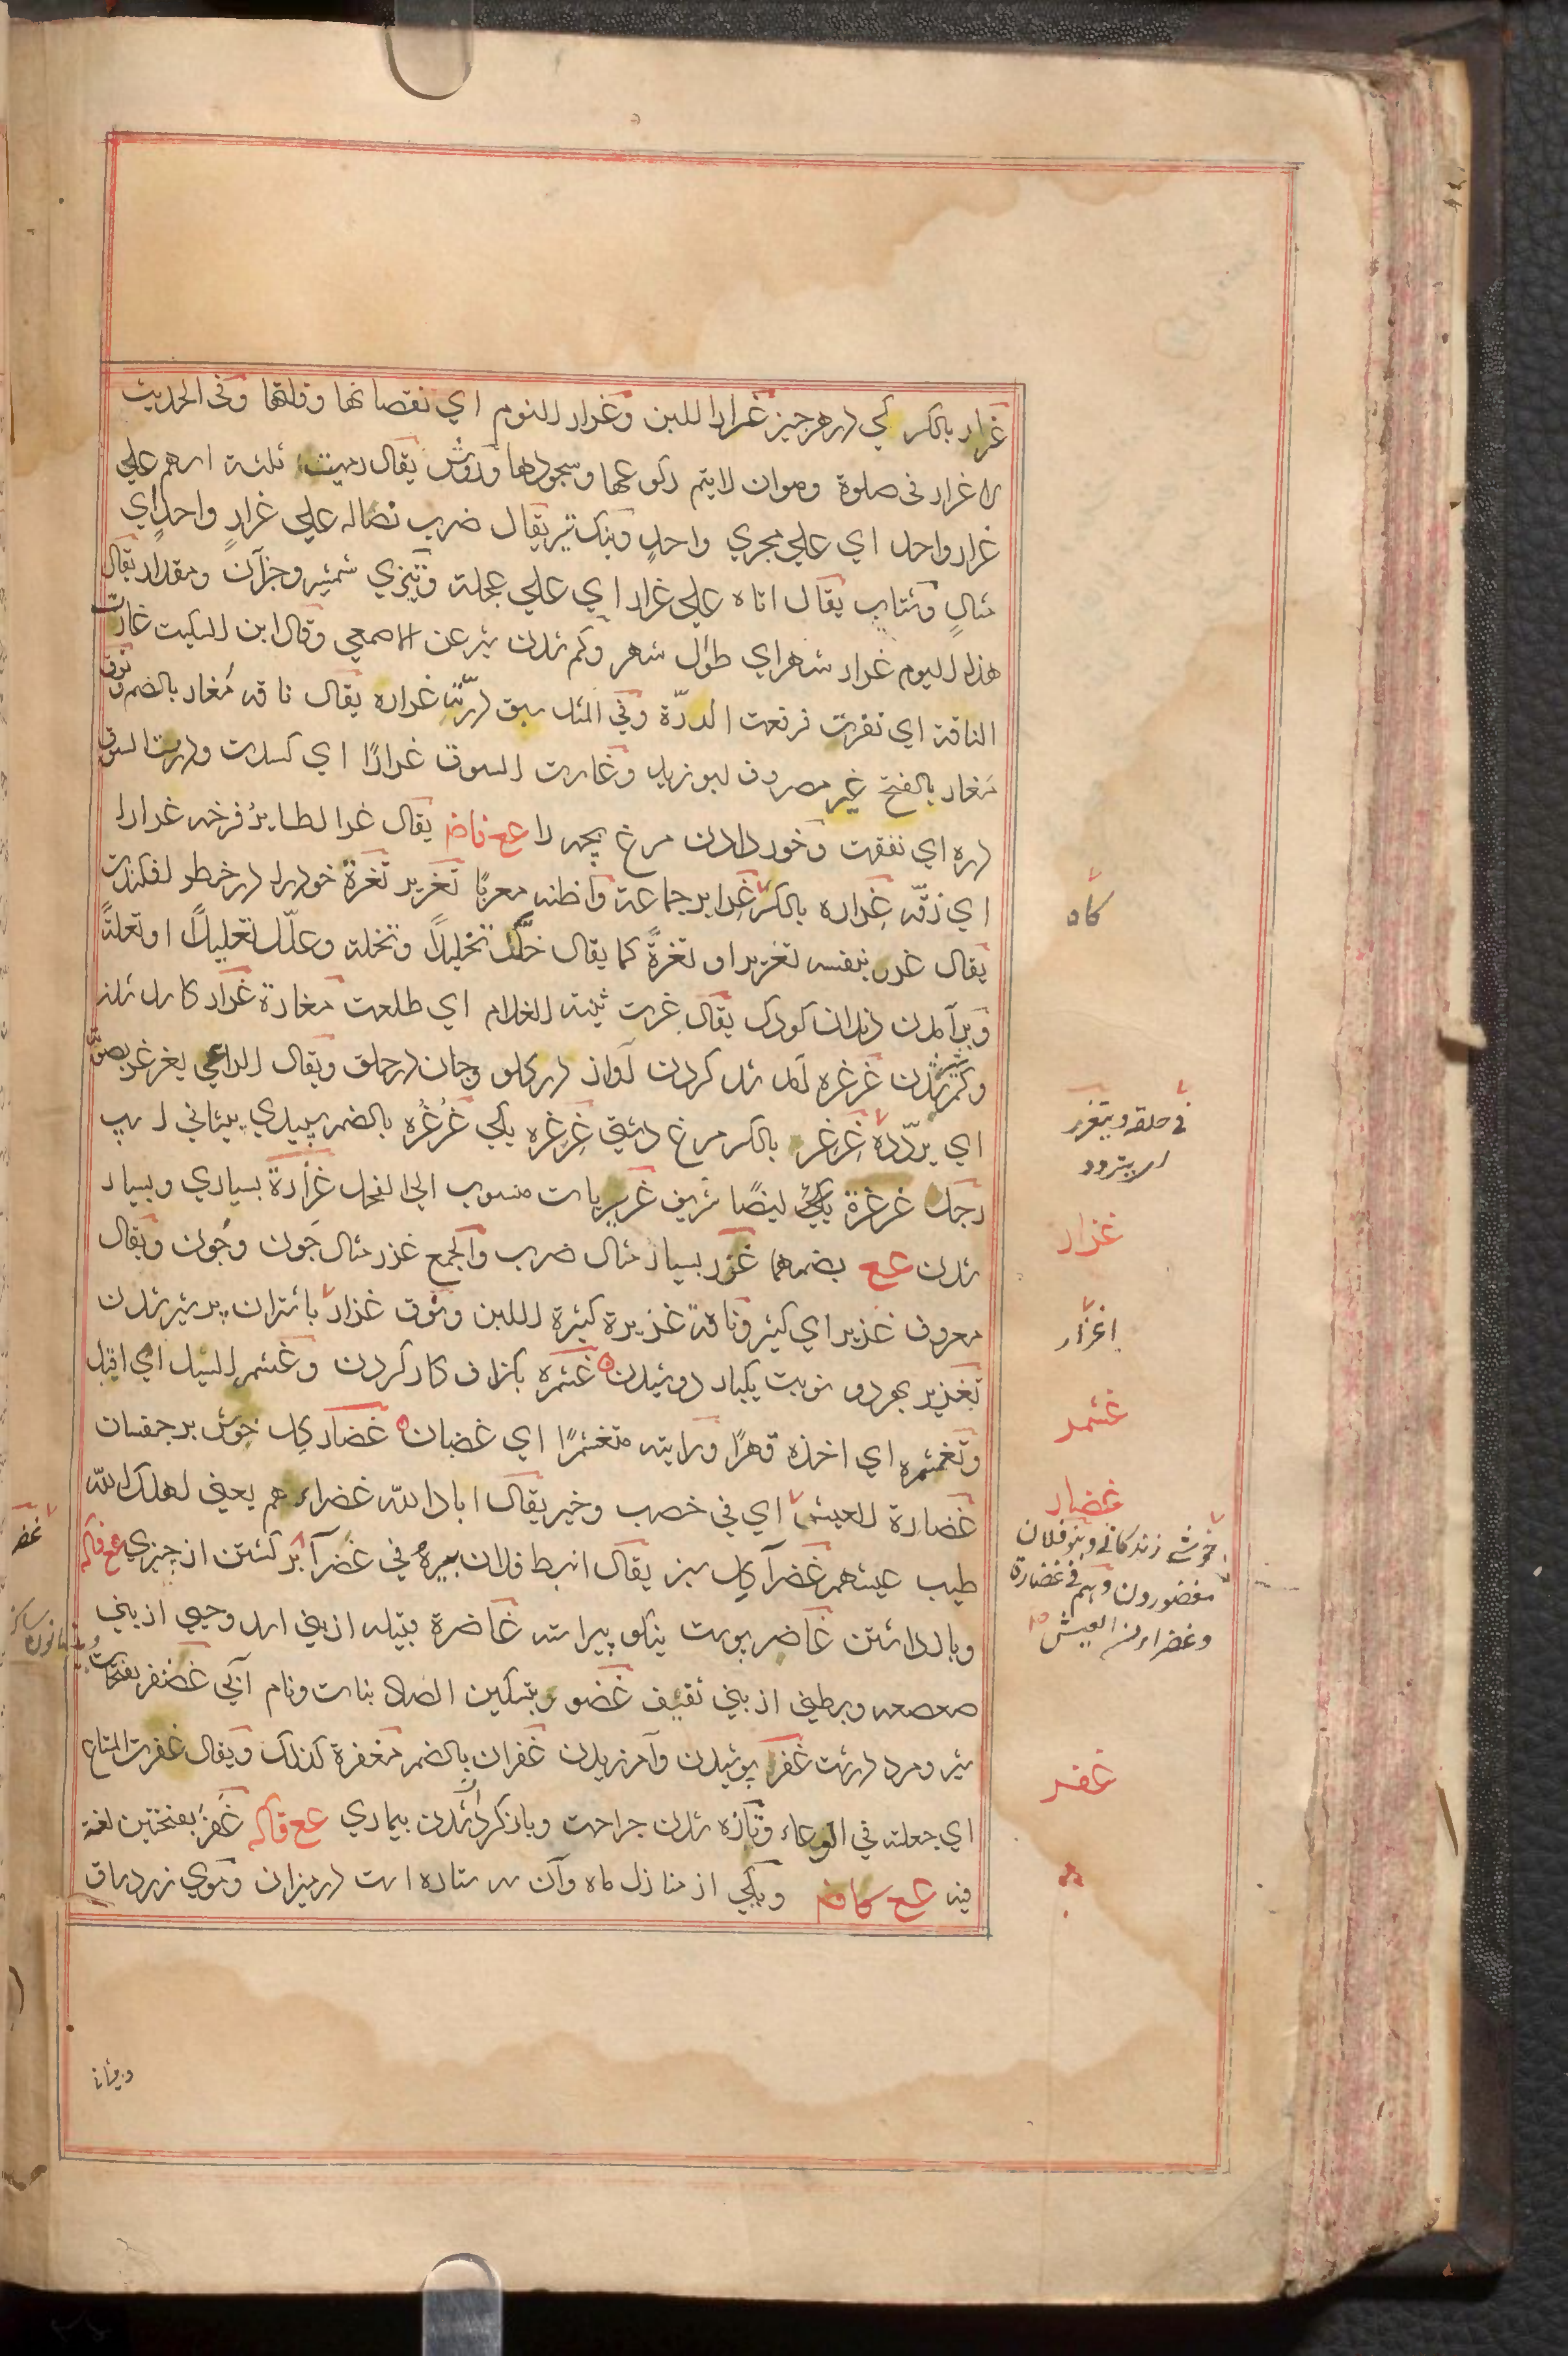 غرار بالکسر کمی در هر چیز غرار اللبن وغرار النوم ای نقصانها وقلتها وفی الحدیث
لا غرار فی صلوة وهو ان لا یتم رکوعها وسجودها وروش یقال رمیت ثلثة اسهم علی
غرار واحد ای علی مجری واحد وپیکان تیر یقال ضرب نصاله علی غرار واحد ای
مثال وشتاب یقال اتاه علی غرار ای علی عجلة وتیزی شمشیر وجزآن ومقدار یقال
هذا الیوم غرار شهر ای طول شهر وکم شدن شیر عن الاصمعی وقال ابن السکیت غارت
الناقة ای نفرت فرفعت الدرّة وفی المثل سبق درّته غراره یقال ناقه مُغار بالضم ونوق
مَغار بالفتح غیر مصروف ابو زید وغارت السوق غرارًا ای کسدت ودرت السوق
دره ای نفقت وخورد دادن مرغ بچه را عع فاض یقال غر الطایرُ فرخه غرارا
ای زقّه غِراره بالکسر غرایر جماعة واظنه معربًا تغریر تغرة خود را در خطر افکندن
یقال غرر بنفسه تغریرا وتغرةً کما یقال حلّل تحلیلًا وتحلة وعلّل تعلیلًا او تعلةً
وبرآمدن دندان کودک یقال غرت ثنیة الغلام ای طلعت مغارة غرار کاسد شدن
وکم شدن شیر غرغره آمد شد کردن آواز در گلو وجان در حلق ویقال الراعی یغرغر بصوته
ای یردّده غِرغِر بالکسر مرغ دشتی غِرغِره یکی غُرغُره بالضم سپیدی پیشانی اسپ
رجل غرغرة یکی ایضًا شریف غریریات منسوب الی الفحل غزارة بسیاری وبسیار
شدن عع بضمهما غزر بسیار مثال ضرب والجمع غزر مثال جَون وجُون ویقال
معروف غزیر ای کثیر وناقة غزیرة کثیرة اللبن ونوق غزار با شتران پر شیر شدن
تغزیر بهر دو نوبت یکبار دوشیدن غثمره بگزاف کار کردن وغثمر السیل ای اقبل
وتغثمره ای اخذه قهرًا ورایته متغثمرًا ای غضبان غضار گل خوش بر جفسان
غضارة العیش ای فی خصب وخیر یقال اباد الله غضراءهم یعنی اهلک الله
طیب عیشهم غضرآ گل سبز یقال انبط فلان بیره فی غضرآ بر گشتن از چیزی عع فاکه
وبازداشتن غاضر پوست نیکو پیراسته غاضرة قبیله از بنی اسد وحیی از بنی
صعصعه وبطنی از بنی ثقیف غضور بتسکین الضاد نبات ونام آبی غضنفر بفتحات
شیر ومرد درشت غفر پوشیدن وآمرزیدن غفران بالضم مغفرة کذلک ویقال غفرت المتاع
ای جعلته فی الوعاء وتازه شدن جراحت وباز گردیدن بیماری عع فاکه غَفَر بفتحتین لغة
فیه عع کاف ویکی از منازل ماه وآن سه ستاره است در میزان وموی زیر ساق
کاه
فی حلقه ویتغرغر
ای یتردد
غزار
اغزار
غثمر
غضار
خوشی زندگانی وبنو فلان
مغضورون وهم فی غضارة
وغضراء من العیش
غفر